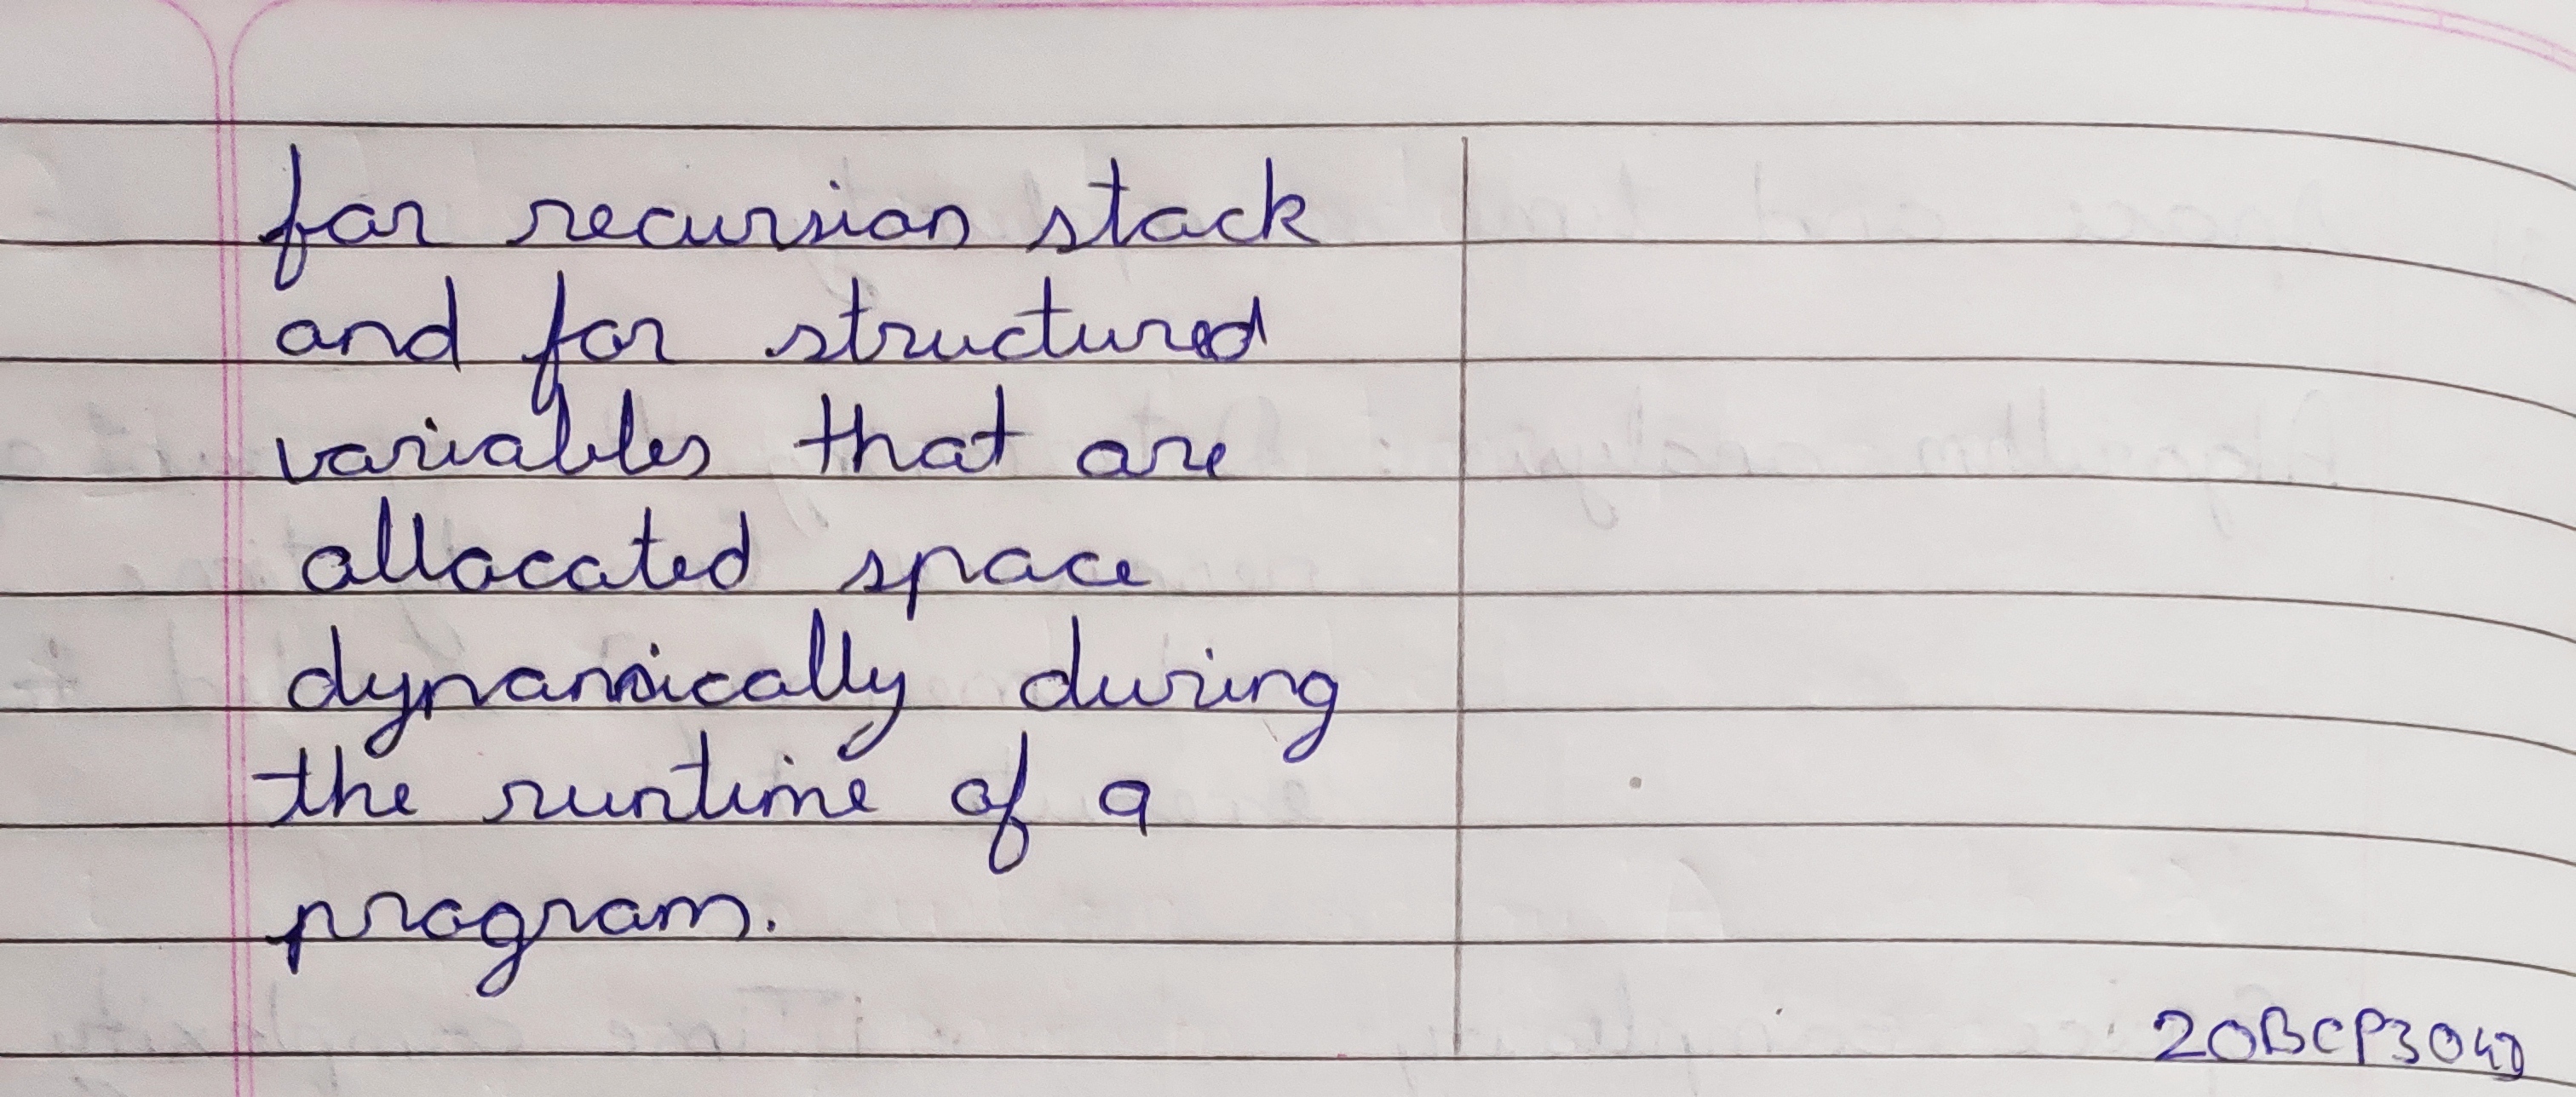 for recursion stack
and for structured
variables that are
allocated space
dynamically during
the runtime of a
program.